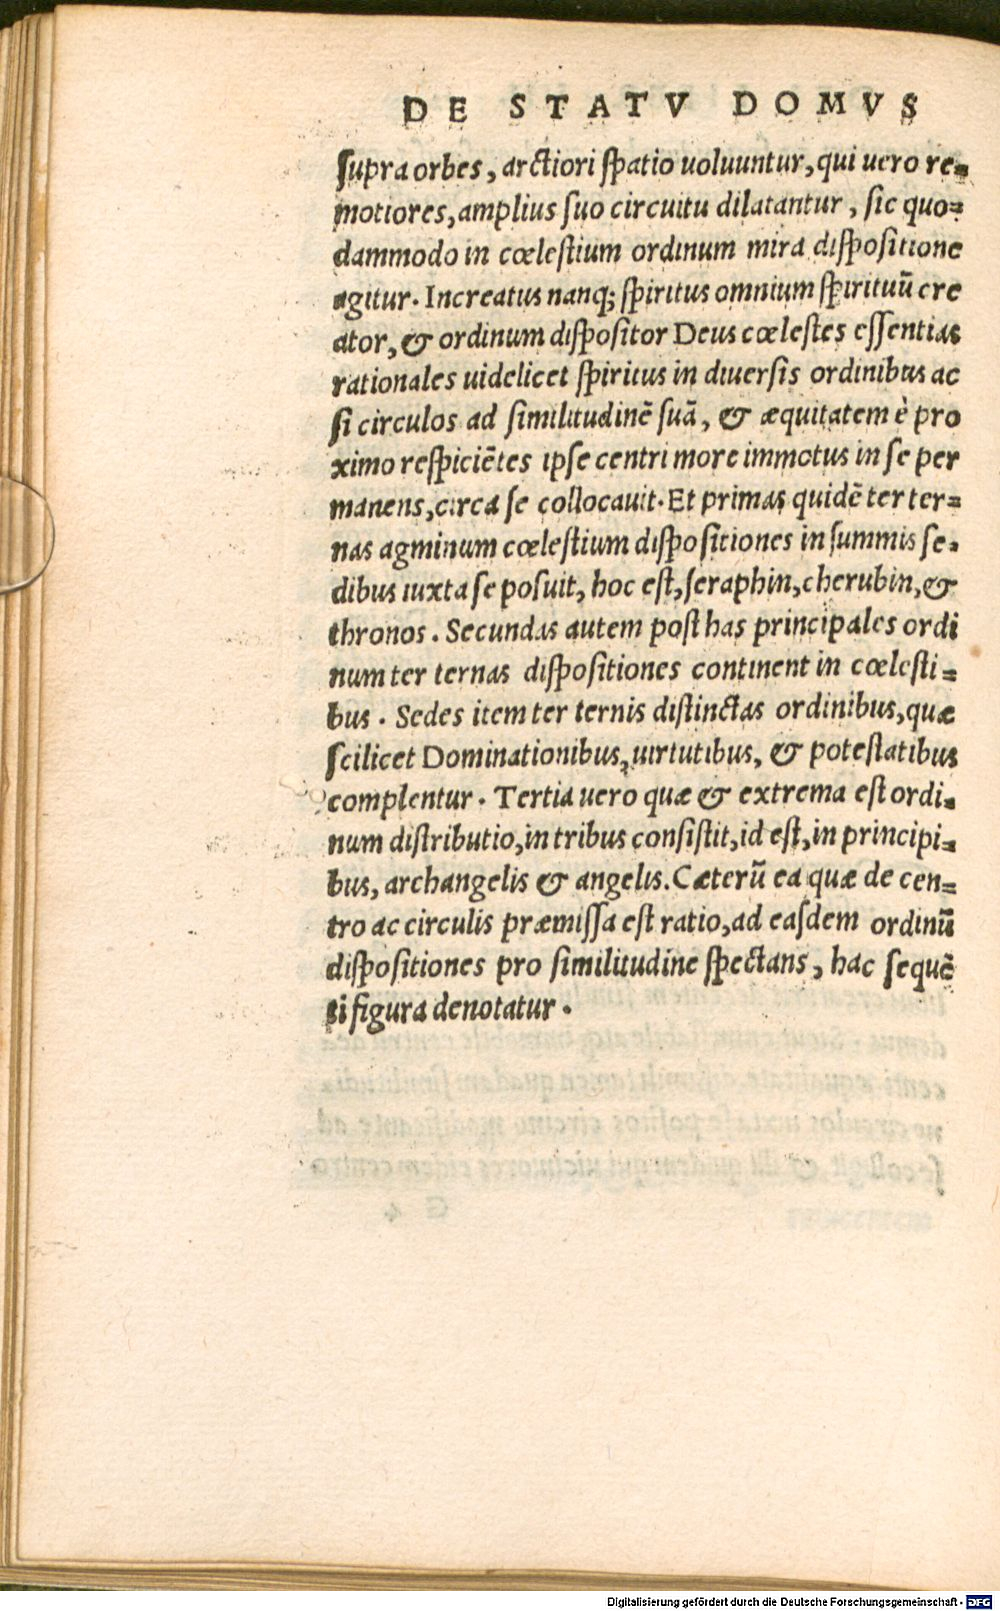 DE STATV DOMVS
supra orbes, arctiori spatio uoluuntur, qui uero re-
motiores, amplius suo circuitu dilatantur, sic quo-
dammodo in cœlestium ordinum mira dispositione
agitur. Increatus nanq; spiritus omnium spirituũ cre
ator, & ordinum dispositor Deus cœlestes essentias
rationales uidelicet spiritus in diuersis ordinibus ac
si circulos ad similitudinẽ suã, & æquitatem è pro
ximo respiciẽtes ipse centri more immotus in se per
manens, circa se collocauit. Et primas quidẽ ter ter-
nas agminum cœlestium dispositiones in summis se-
dibus iuxta se posuit, hoc est, seraphin, cherubin, &
thronos. Secundas autem post has principales ordi
num ter ternas dispositiones continent in cœlesti-
bus. Sedes item ter ternis distinctas ordinibus, quæ
scilicet Dominationibus, uirtutibus, & potestatibus
complentur. Tertia uero quæ & extrema est ordi-
num distributio, in tribus consistit, id est, in principi-
bus, archangelis & angelis. Cæterũ ea quæ de cen-
tro ac circulis præmissa est ratio, ad easdem ordinũ
dispositiones pro similitudine spectans, hac sequẽ
ti figura denotatur.
Digitalisierung gefördert durch die Deutsche Forschungsgemeinschaft - DFG